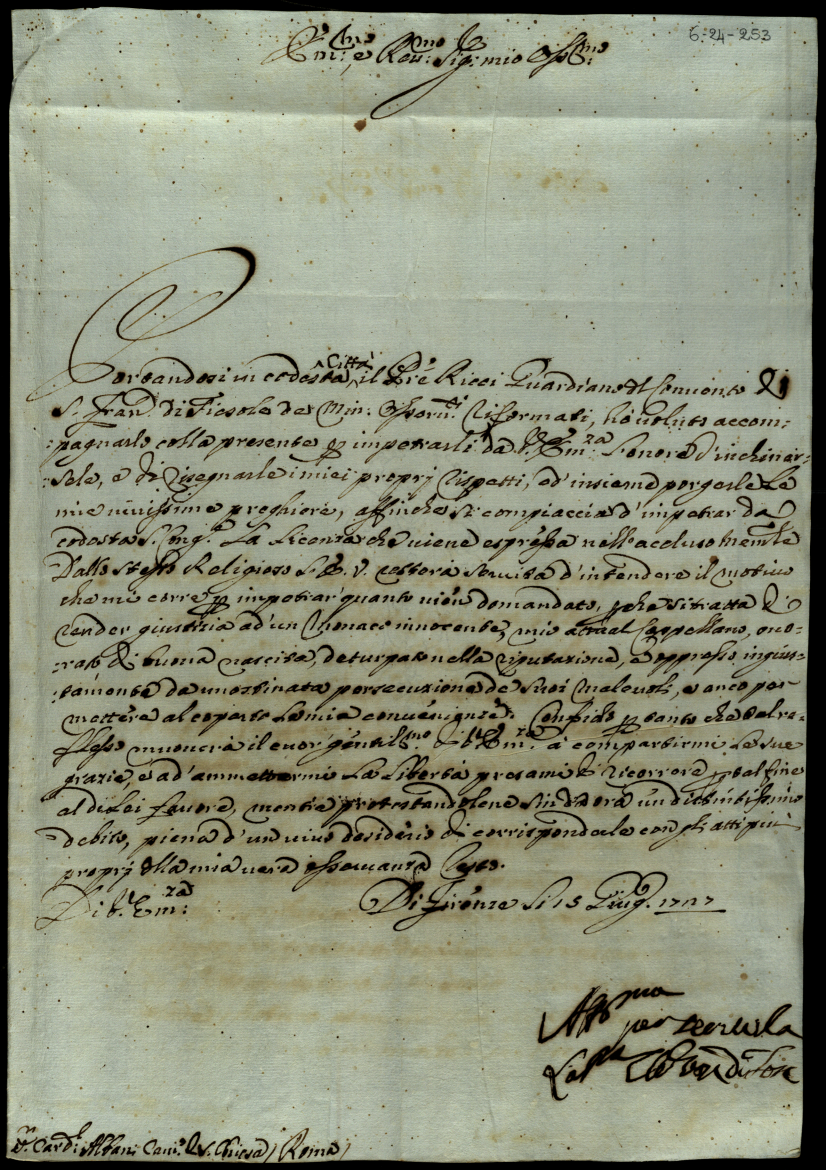 6-24-253
Em:mo e Rev:mo Sig:re mio Oss:mo
Portandosi in codesta Città il Pre Ricci Guardiano del Convento di
S. Fran.co di Fiesole de Min: Osserv:ti Riformati, hò voluto accom:
:pagnarlo colla presente per impetrarli da V. Em:za l'onore d'inchinar:
:sele, e di rasegnarle i miei proprj rispetti, ed insieme porgerle le
mie vivissime preghiere, affinche si compiaccia d'impetrar da
codesta S. Cong.e la licenza che viene espressa nell'accluso Memle
dallo stesso Religioso S. E. V. resterà servita d'intendere il motivo
che mi corre per impetrar quanto vien domandato, perche si tratta di
render giustizia ad un Monaco innocente, mio attual Cappellano, ono:
:rato di buona nascita, deturpato nella riputazione, e oppresso ingius:
:tamente da un ostinata persecuzione de suoi Malevoli, e anco per
mettere al coperto la mia convenienza. Confido per tanto che tal ri:
:flesso muoverà il cuor gentil:mo di V. Em:za à compartirmi le sue
grazie, e ad'ammettermi la libertà presami di ricorrere per tal fine
al di Lei favore, mentre protestandolene sin d'ora un distintissimo
debito, piena d'un vivo desiderio di corrisponderle con gli atti più
proprj della mia vera osservanza resto.
Di V. Em:za Di Firenze li 15 Giug. 1717
Aff:ma per servirla
La Pssa di Toscana
Sr. Card.l Albani Cam.o di S. Chiesa / Roma /